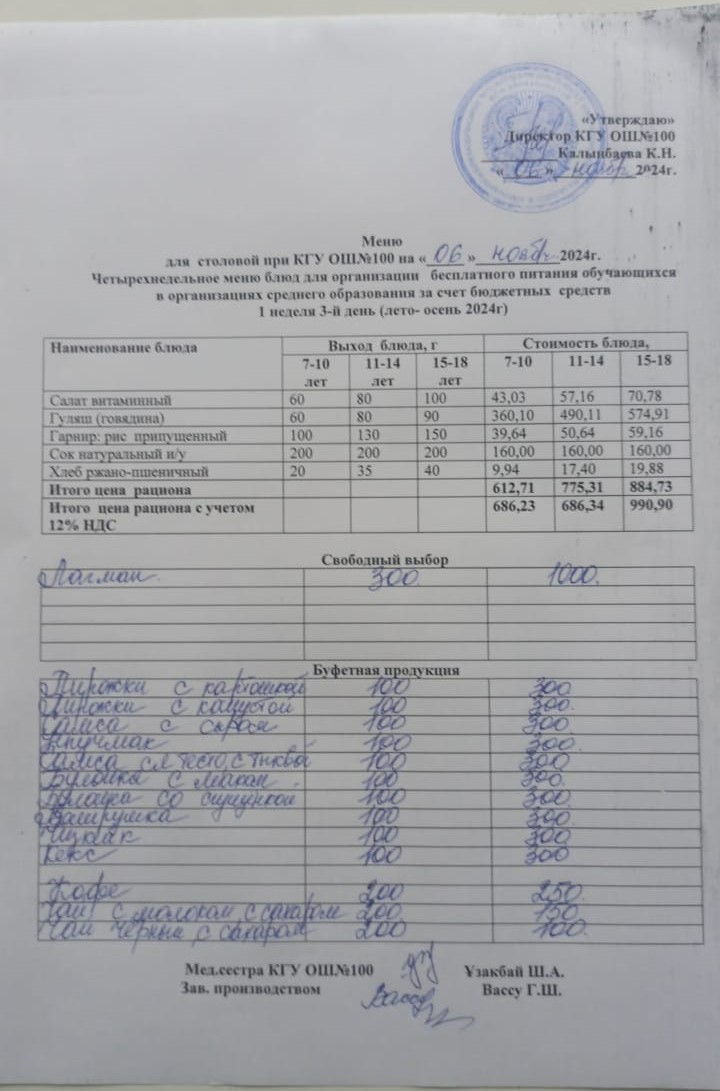 «Утверждаю»
Директор КГУ ОШ№100
Калынбаева К.Н.
« 06 » ноябр 2024г.
Меню
для столовой при КГУ ОШ№100 на « 06 » ноябр 2024г.
Четырехнедельное меню блюд для организации бесплатного питания обучающихся
в организациях среднего образования за счет бюджетных средств
1 неделя 3-й день (лето- осень 2024г)
Наименование блюда Выход блюда, г Стоимость блюда,
7-10 лет 11-14 лет 15-18 лет 7-10 11-14 15-18
Салат витаминный 60 80 100 43,03 57,16 70,78
Гуляш (говядина) 60 80 90 360,10 490,11 574,91
Гарнир: рис припущенный 100 130 150 39,64 50,64 59,16
Сок натуральный и/у 200 200 200 160,00 160,00 160,00
Хлеб ржано-пшеничный 20 35 40 9,94 17,40 19,88
Итого цена рациона 612,71 775,31 884,73
Итого цена рациона с учетом 686,23 686,34 990,90
12% НДС
Свободный выбор
Лагман 300 1000
Буфетная продукция
Пирожки с картошкой 100 300
Пирожки с капустой 100 300
Самса с сыром 100 300
Эпучмак 100 300
Самса сл тесто, с тыквой 100 300
Булочка с маком 100 300
Булочка со сгущенкой 100 300
Ватрушка 100 300
Чизкейк 100 300
Кекс 100 300
Кофе 200 250
Чай с молоком, с сахаром 200 150
Чай черный, с сахаром 200 100
Мед.сестра КГУ ОШ№100 Ұзакбай Ш.А.
Зав. производством Вассу Г.Ш.